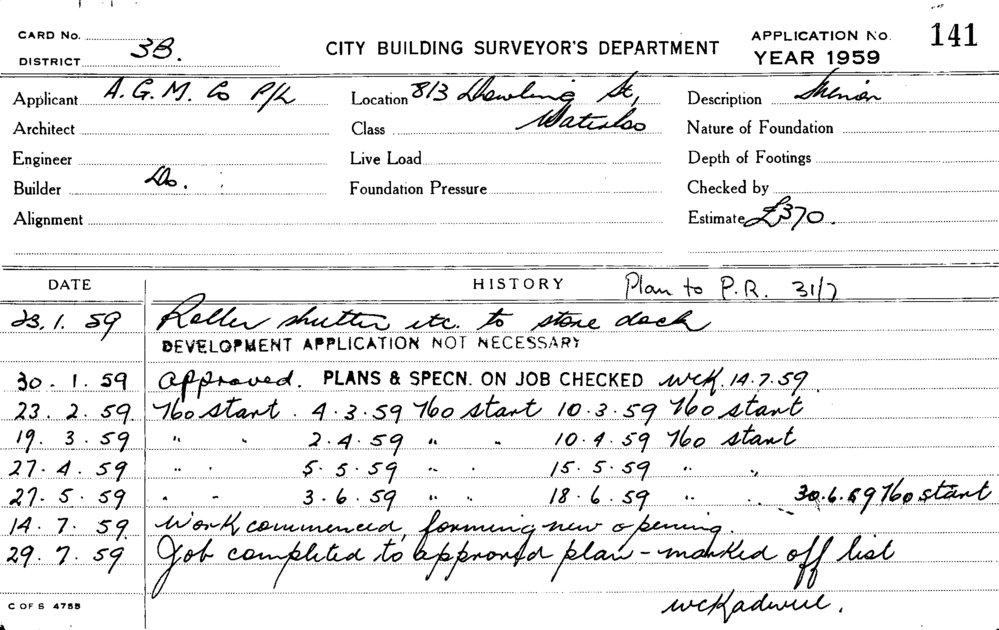 CARD No.
DISTRICT 3B.
CITY BUILDING SURVEYOR'S DEPARTMENT
APPLICATION No. 141
YEAR 1959
Applicant A.G.M. Co P/L
Location 813 Dowling St,
Description
Architect
Class Waterloo
Nature of Foundation
Engineer
Live Load
Depth of Footings
Builder Do.
Foundation Pressure
Checked by
Alignment
Estimate £370.
DATE HISTORY Plan to P.R. 31/7
23.1.59 Roller shutter etc. to store dock
DEVELOPMENT APPLICATION NOT NECESSARY
30.1.59 Approved. PLANS & SPECN. ON JOB CHECKED WCK. 14.7.59
23.2.59 No start. 4.3.59 No start 10.3.59 No start
19.3.59 " " 2.4.59 " " 10.4.59 No start
27.4.59 " " 5.5.59 " " 15.5.59 " "
27.5.59 " " 3.6.59 " " 18.6.59 " " 30.6.59 No start
14.7.59 Work commenced, forming new opening.
29.7.59 Job completed to approved plan - marked off list
C OF S 475B